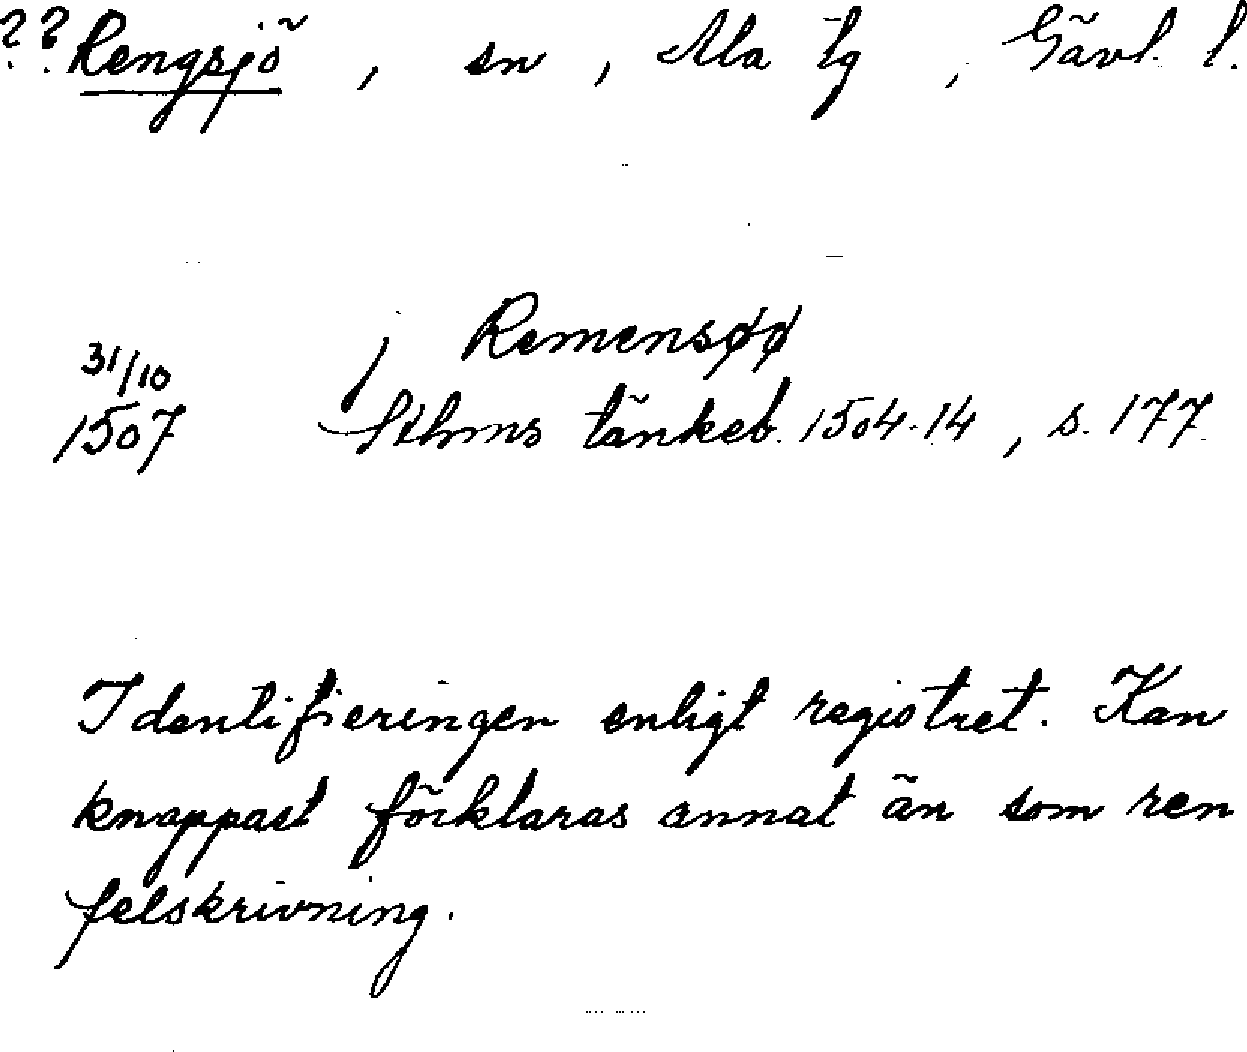 ??Rengsjö, sn, Ala tg, Gävl. l.
Remensøø
31/10
1507 Sthms tänkeb. 1504-14, s. 177.
Identifieringen enligt registret. Kan
knappast förklaras annat än som ren
felskrivning.